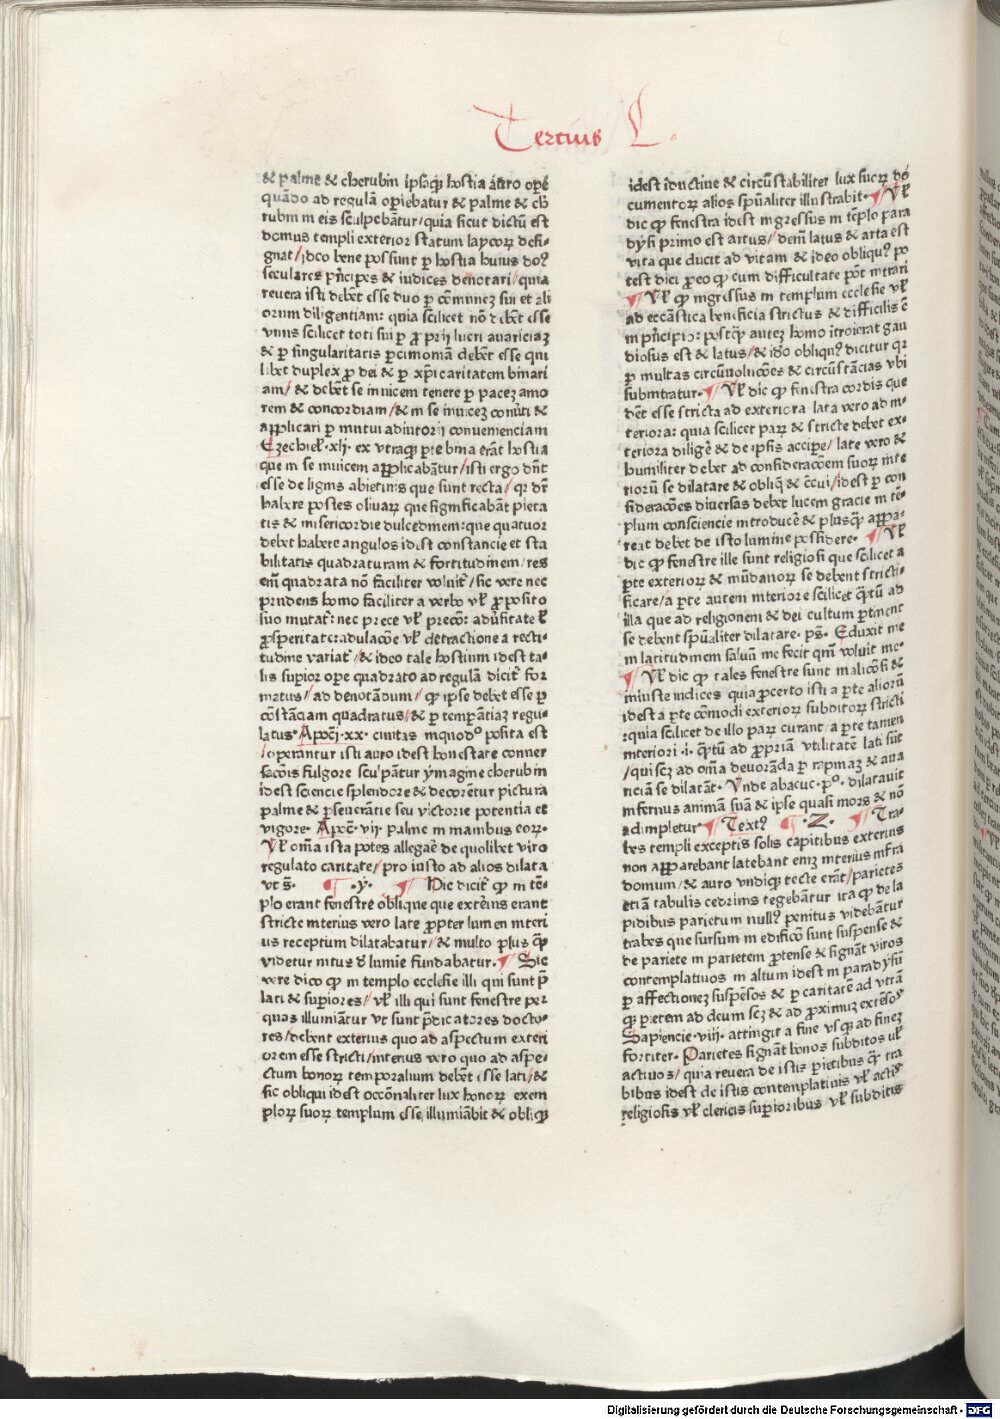 Tercius L.
& palme & cherubin ipsaqꝫ hostia auro opẽ
quãdo ad regulã opiebatur & palme & che
rubin in eis sculpebãtur/quia sicut dictũ est
domus templi exterior statum laycoꝝ desi-
gnat/ideo bene possunt ꝑ hostia huius dõꝰ
seculares pñcipes & iudices denotari/quia
reuera isti debẽt esse duo ꝑ cõmuneꝫ sui et ali
orum diligentiam: quia scilicet nõ debẽt esse
vnius scilicet toti sui ꝑ ꝓprij lucri auariciaꝫ
& ꝑ singularitatis ꝑcimoniã debẽt esse qui
libet duplex ꝓ dei & ꝑ xp̃i caritatem binari
am/ & debẽt se inuicem tenere ꝑ paceꝫ amo
rem & concordiam/& in se inuiceꝫ conũti &
applicari ꝑ mutui adiutorij conuenienciam
Ezechiel̃.xlj. ex vtraqꝫ pte bina erãt hostia
que in se inuicem applicabãtur/isti ergo dñt
esse de lignis abietinis que sunt recta/qr dñt
habere postes oliuaꝝ que significabãt pieta
tis & misericordie dulcedinem:que quatuor
debẽt habere angulos idest constancie et sta
bilitatis quadraturam & fortitudinem/res
em̃ quadrata nõ faciliter voluit̃/sic vere nec
prudens homo faciliter a verbo vl̃ ꝓposito
suo mutat̃: nec prece vl̃ precõ: aduersitate vl̃
ꝓsperitate:adulacõe vl̃ detractione a recti-
tudine variat̃/& ideo tale hostium idest ta-
lis supior ope quadrato ad regulã dicit̃ for
matus/ad denotãdum/ qꝫ ipse debet esse ꝑ
cõstãciam quadratus/& ꝑ tempantiaꝫ regu-
latus. Apoc̃j.xx. ciuitas inquodꝰ posita est
/operantur isti auro idest honestate conuer
sacõis fulgore sculpãtur ymagine cherubin
idest sciencie splendore & decorẽtur pictura
palme & ꝑseuerãtie seu victorie potentia et
vigore. Apoc̃. vij. palme in manibus eoꝝ.
Vl̃ om̃a ista potes allegare de quolibet viro
regulato caritate/pro iusto ad alios dilata
vt s̃. ¶ .y. ¶ Hic dicit̃ qꝫ in tẽ-
plo erant fenestre oblique que exteriꝰ erant
stricte interius vero late ꝓpter lumen interi
us receptum dilatabatur/& multo plus q̃m
videtur intus ꝺ lumie fundabatur. ¶ Sic
vere dico qꝫ in templo ecclesie illi qui sunt p̃
lati & supiores/vl̃ illi qui sunt fenestre per
quas illumiãtur vt sunt p̃dicatores docto-
res/debent exterius quo ad aspectum exteri
orem esse stricti/interius vero quo ad aspe-
ctum bonoꝝ temporalium debẽt esse lati/&
sic obliqui idest occõnaliter lux bonoꝝ exem
ploꝝ suoꝝ templum esse illumiãbit & obliqꝫ
idest idnctine & circũstabiliter lux suoꝝ do
cumentoꝝ alios spũaliter illustrabit. ¶ Vl̃
dic qꝫ fenestra idest ingressus in tẽplo para
dysi primo est artus/ deiñ latus & arta est
vita que ducit ad vitam & ideo obliquꝰ po
test dici ꝓeo qꝫ cum difficultate põt intrari
¶ Vl̃ qꝫ ingressus in templum ecclesie vl̃
ad eccãstica beneficia strictus & difficilis ẽ
in pñcipio: postqꝫ auteꝫ homo ĩtroierat gau
diosus est & latus/& ido obliquꝰ dicitur qr
ꝑ multas circũuolucões & circũstãcias vbi
subintratur. ¶ Vl̃ dic qꝫ finestra cordis que
dẽt esse stricta ad exteriora lata vero ad in-
teriora: quia scilicet paꝝ & stricte debet ex-
teriora diligẽ & de ipsis accipe/ late vero &
humiliter debet ad consideracõem suoꝝ inte
rioꝝ se dilatare & obliq̃ & ẽcui/idest ꝑ con
sideracões diuersas debet lucem gracie in tẽ-
plum consciencie introducẽ & plusq̃ appa-
reat debet de isto lumine possidere. ¶ Vl̃
dic qꝫ fenestre ille sunt religiosi que scilicet a
ꝑte exterioꝝ & mũdanoꝝ se debent stricti-
ficare/a ꝑte autem interiore scilicet qᷓtũ ad
illa que ad religionem & dei cultum ꝑtinent
se debent spũaliter dilatare. ps̃. Eduxit me
in latitudinem saluũ me fecit qm̃ voluit me.
¶ Vl̃ dic qꝫ tales fenestre sunt maliciosi &
iniuste iudices quia ꝓcerto isti a ꝑte alioꝝ
idest a ꝑte cõmodi exterioꝝ subditoꝝ stricti
:quia scilicet de illo paꝝ curant/a ꝑte tamen
interiori .i. qᷓtũ ad ꝓpriã vtilitatẽ lati sũt
/qui scꝫ ad om̃a deuorãda ꝑ rapinaꝫ & aua
riciã se dilatãt. Vnde abacuc.pº. dilatauit
infernus animã suã & ipse quasi mors & nõ
adimpletur ¶ Textꝰ ¶ .Z. ¶ Tra-
bes templi exceptis solis capitibus exterius
non apparebant latebant eniꝫ interius infra
domum/& auro vndiqꝫ tecte erãt/parietes
etiã tabulis cedrinis tegebãtur ita qꝫ de la
pidibus parietum nullꝰ penitus videbãtur
trabes que sursum in edificõ sunt suspense &
de pariete in parietem ꝓtense & signãt viros
contemplatiuos in altum idest in paradysũ
ꝑ affectioneꝫ suspẽsos & ꝑ caritatẽ ad vtrã
qꝫ pietem ad deum scꝫ & ad ꝓximuꝫ extẽsos
Sapiencie.viij. attingit a fine vsqꝫ ad fineꝫ
fortiter. Parietes signãt bonos subditos vl̃
actiuos/quia reuera de istis pietibus q̃ tra
bibus idest de istis contemplatiuis vl̃ actis
religiosis vl̃ clericis supioribus vl̃ subditis
Digitalisierung gefördert durch die Deutsche Forschungsgemeinschaft - DFG